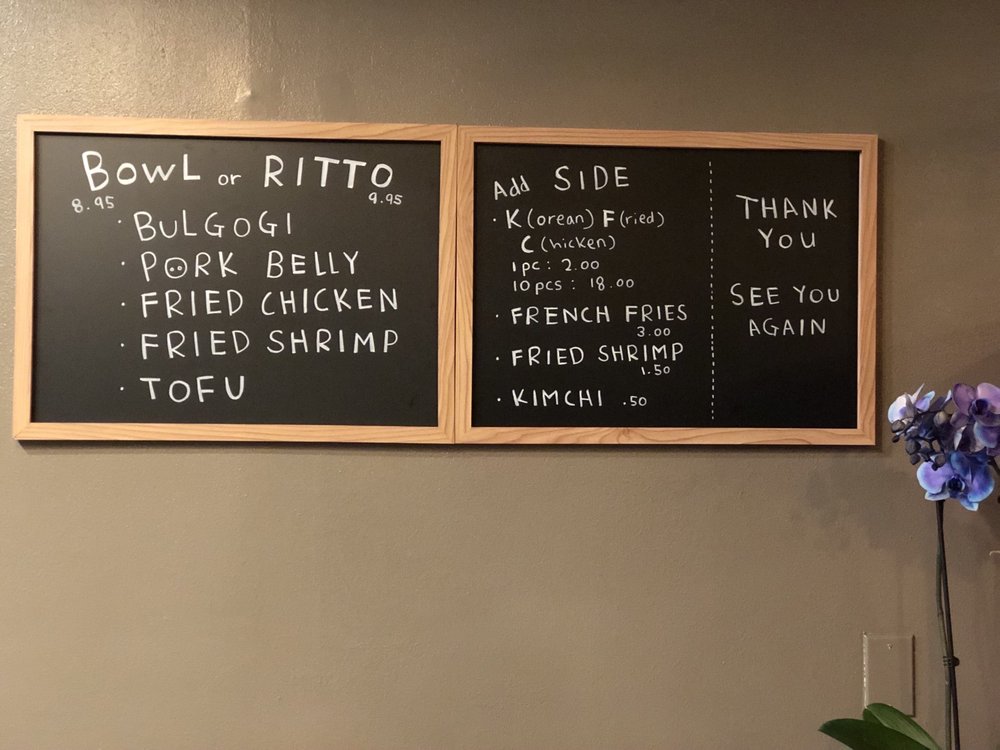 BOWL or RITTO
8.95 9.95
· BULGOGI
· PORK BELLY
· FRIED CHICKEN
· FRIED SHRIMP
· TOFU
Add SIDE
· K(orean) F(ried)
C(hicken)
1pc: 2.00
10pcs: 18.00
· FRENCH FRIES
3.00
· FRIED SHRIMP
1.50
· KIMCHI .50
THANK
YOU
SEE YOU
AGAIN